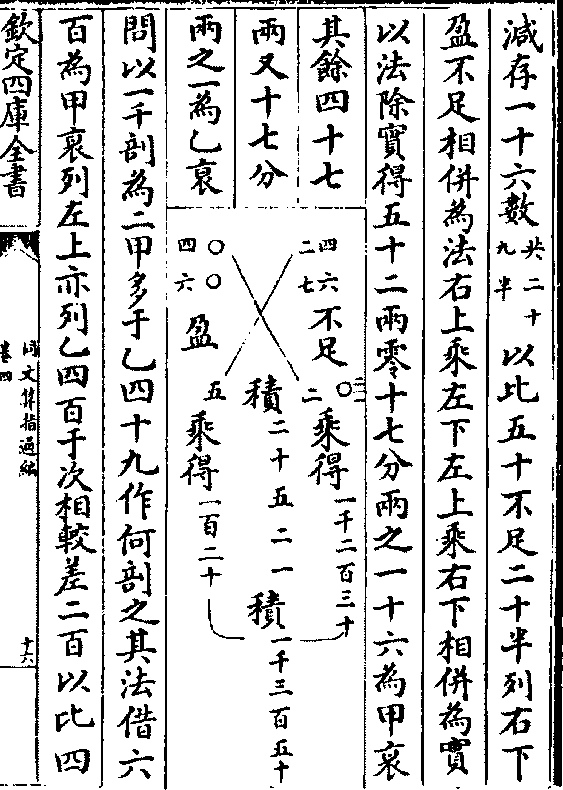 減存一十六數共二十九半以比五十不足二十半列右下
盈不足相併為法右上乘左下左上乘右下相併為實
以法除實得五十二兩零十七分兩之一十六為甲裒
其餘四十七
兩又十七分
兩之一為乙裒
四六 二七
不足
二〇
乘得一千二百三十
積二十五二一
積一千三百五十
〇〇 四六
盈
五
乘得一百二十
問以一千剖為二甲多于乙四十九作何剖之其法借六
百為甲裒列左上亦列乙四百于次相較差二百以比四
欽定四庫全書
同文算指通編
卷四
十六